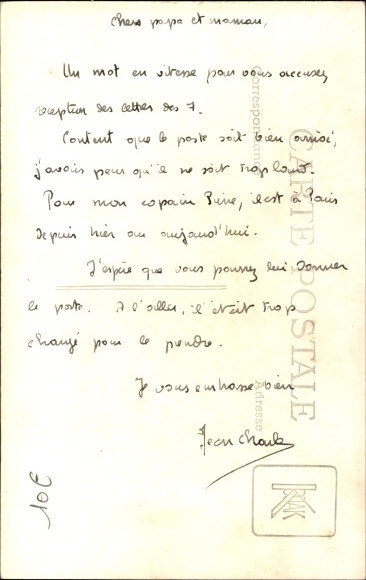 Chers papa et maman,
Un mot en vitesse pour vous accuser
réception des lettres des 7.
Content que le poste soit bien arrivé,
j'avais peur qu'il ne soit trop lourd.
Pour mon copain Pierre, il est à Paris
depuis hier ou aujourd'hui.
J'espère que vous pourrez lui donner
le poste. A l'aller, il était trop
chargé pour le prendre.
Je vous embrasse bien
Jean Charles
10€
CARTE POSTALE
Correspondance
Adresse